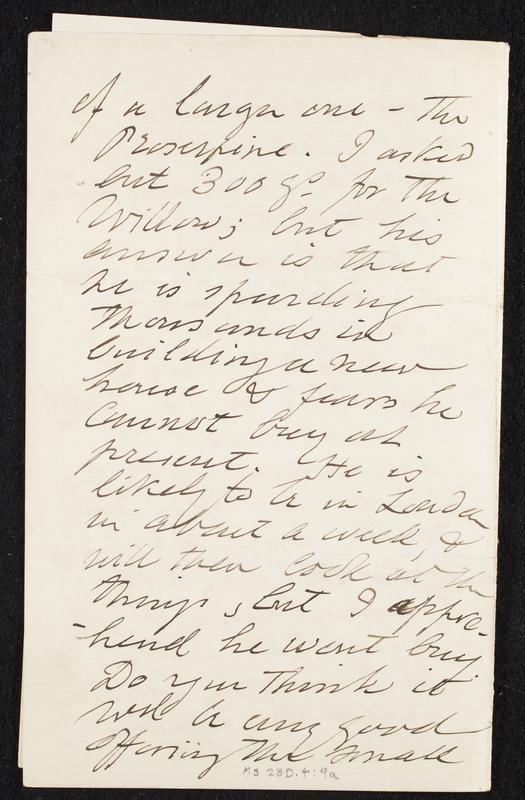 of a larger one – the
Proserpine. I asked
but 300 gs for the
Willow; but his
answer is that
he is spending
thousands in
building a new
house & fears he
cannot buy at
present. He is
likely to be in London
in about a week, &
will then look at the
things, but I appre-
-hend he wont buy.
Do you think it
wd be any good
offering the small
MS 23D.4:9a